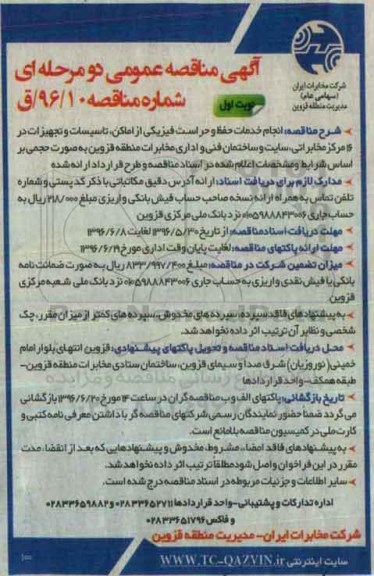 شرکت مخابرات ایران
(سهامی عام)
مدیریت منطقه قزوین
آگهی مناقصه عمومی دو مرحله ای
شماره مناقصه ۹۶/۱۰/ق
نوبت اول
شرح مناقصه: انجام خدمات حفظ و حراست فیزیکی از اماکن، تاسیسات و تجهیزات در
۱۶ مرکز مخابراتی، سایت و ساختمان فنی و اداری مخابرات منطقه قزوین به صورت حجمی بر
اساس شرایط و مشخصات اعلام شده در اسناد مناقصه و طرح قرارداد ارائه شده
مدارک لازم برای دریافت اسناد: ارائه آدرس دقیق مکاتباتی با ذکر کد پستی و شماره
تلفن تماس به همراه ارائه نسخه صاحب حساب فیش بانکی واریزی مبلغ ۲۱۸/۰۰۰ ریال به
حساب جاری ۰۱۰۵۹۸۸۸۴۳۰۰۶ نزد بانک ملی مرکزی قزوین
مهلت دریافت اسناد مناقصه: از تاریخ ۱۳۹۶/۵/۳۰ لغایت ۱۳۹۶/۶/۸
مهلت ارائه پاکتهای مناقصه: لغایت پایان وقت اداری مورخ ۱۳۹۶/۶/۱۹
میزان تضمین شرکت در مناقصه: مبلغ ۸۳۳/۹۹۷/۴۰۰ ریال به صورت ضمانت نامه
بانکی یا فیش نقدی واریزی به حساب جاری ۰۱۰۵۹۸۸۸۴۳۰۰۶ نزد بانک ملی شعبه مرکزی
قزوین
به پیشنهادهای فاقد سپرده، سپرده های مخدوش، سپرده های کمتر از میزان مقرر، چک
شخصی و نظایر آن ترتیب اثر داده نخواهد شد.
محل دریافت اسناد مناقصه و تحویل پاکتهای پیشنهادی: قزوین انتهای بلوار امام
خمینی (نوروزیان) شرق صدا و سیمای قزوین، ساختمان ستادی مخابرات منطقه قزوین-
طبقه همکف- واحد قراردادها
تاریخ بازگشائی: پاکتهای الف و ب مناقصه گران در ساعت ۱۴ مورخ ۱۳۹۶/۶/۲۰ بازگشائی
می گردد ضمنا حضور نمایندگان رسمی شرکتهای مناقصه گر با داشتن معرفی نامه کتبی و
کارت ملی در کمیسیون مناقصه بلامانع است.
به پیشنهادهای فاقد امضاء، مشروط، مخدوش و پیشنهادهایی که بعد از انقضاء مدت
مقرر در این فراخوان واصل شود مطلقا ترتیب اثر داده نخواهد شد.
سایر اطلاعات و جزئیات مربوطه در اسناد مناقصه درج شده است.
اداره تدارکات و پشتیبانی- واحد قراردادها ۰۲۸۳۳۶۵۲۷۱۱ و ۰۲۸۳۳۶۵۹۸۸۲
و فاکس ۰۲۸۳۳۶۵۱۷۹۶
شرکت مخابرات ایران- مدیریت منطقه قزوین
سایت اینترنتی WWW.TC-QAZVIN.ir